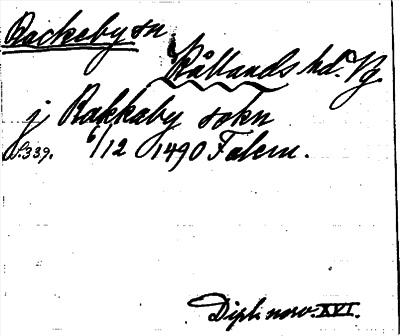 Rackeby sn
Kållands hd. Vg
j Rakkaby sokn
s.339. 6/12 1490 Falem.
Dipl. norv. XVI.